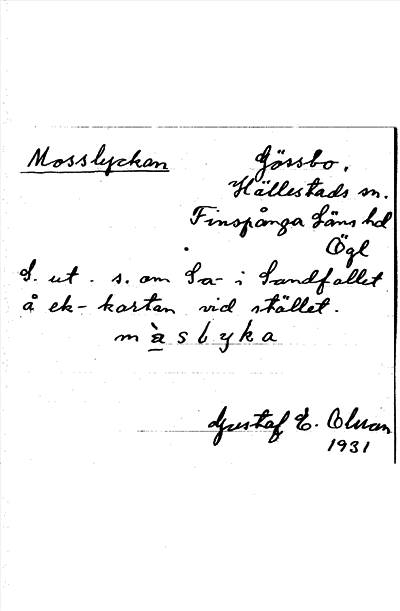 Mosslyckan
Gössbo.
Hällestads sn.
Finspånga Läns hd
Ögl
L. ut. s. om La- i Sandfallet
å ek-kartan vid stället.
màslyka
Gustaf E.
1931